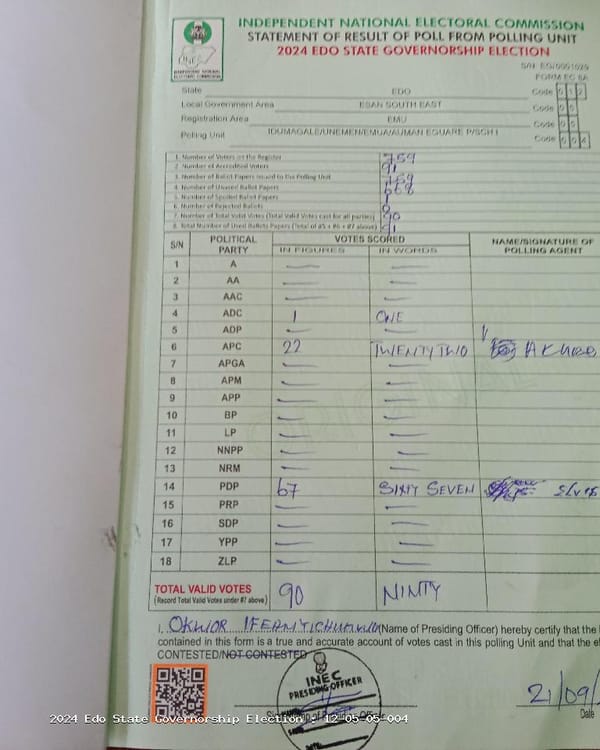 INDEPENDENT NATIONAL ELECTORAL COMMISSION
STATEMENT OF RESULT OF POLL FROM POLLING UNIT
2024 EDO STATE GOVERNORSHIP ELECTION
FORM EC 8A
State EDO Code 0 1 2
Local Government Area ESAN SOUTH EAST Code 0 5
Registration Area EMU Code 0 5
Polling Unit IDUMAGALE/UNEMEN/EMUA/AUMAN EGUARE P/SCH I Code 0 0 4
1. Number of Voters on the Register 759
2. Number of Accredited Voters 91
3. Number of Ballot Papers Issued to the Polling Unit 759
4. Number of Unused Ballot Papers 668
5. Number of Spoiled Ballot Papers 1
6. Number of Rejected Ballots 0
7. Number of Total Valid Votes (Total Valid Votes cast for all parties) 90
8. Total Number of Used Ballots Papers (Total of #5 + #6 + #7 above) 91
S/N POLITICAL PARTY VOTES SCORED NAME/SIGNATURE OF POLLING AGENT
IN FIGURES IN WORDS
1 A — —
2 AA — —
3 AAC — —
4 ADC 1 ONE
5 ADP — —
6 APC 22 TWENTY TWO
7 APGA — —
8 APM — —
9 APP — —
10 BP — —
11 LP — —
12 NNPP — —
13 NRM — —
14 PDP 67 SIXTY SEVEN
15 PRP — —
16 SDP — —
17 YPP — —
18 ZLP — —
TOTAL VALID VOTES 90 NINTY
(Record Total Valid Votes under #7 above)
I, OKWOR IFEANYICHUKWU (Name of Presiding Officer) hereby certify that the
contained in this form is a true and accurate account of votes cast in this polling Unit and that the
CONTESTED/NOT CONTESTED
INEC
PRESIDING OFFICER
21/09/
Date
2024 Edo State Governorship Election : 12-05-05-004